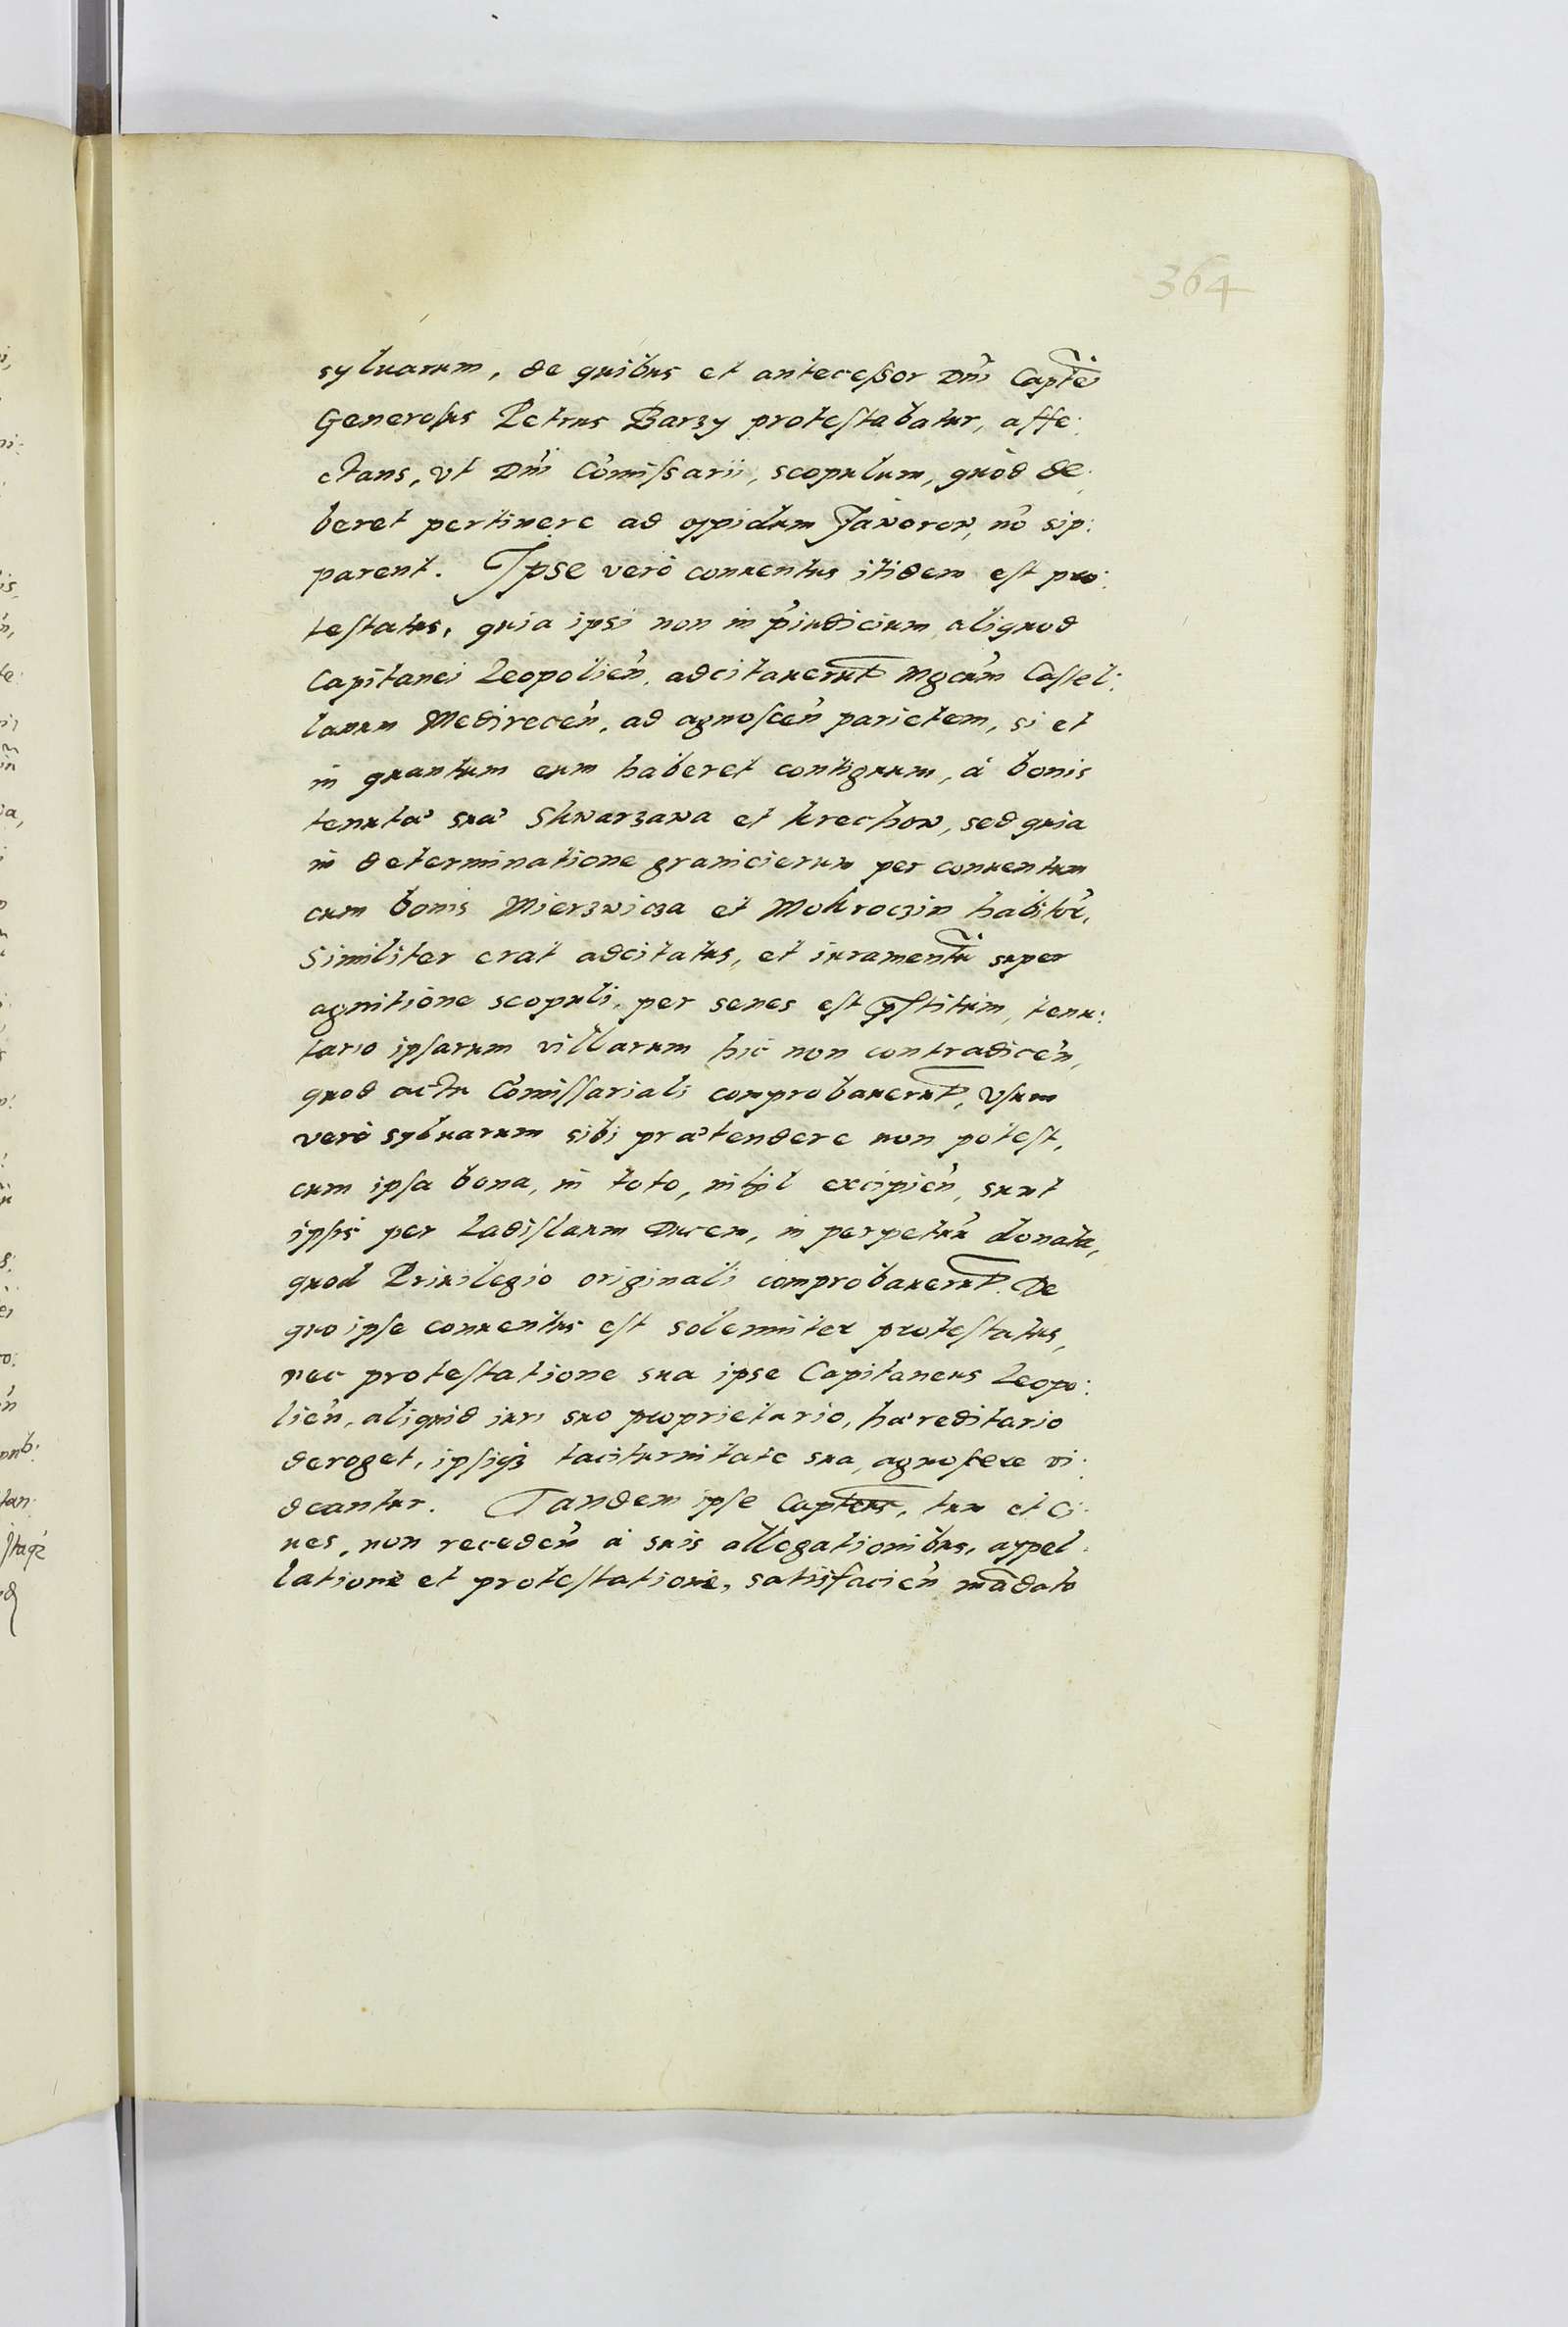 364
syluarum, de quibus et antecessor Dni Captei
Generosus Petrus Barzy protestabatur, affe:
ctans, vt Dni Comissarii, scopulum, quod de:
beret pertinere ad oppidum Janorow, no sip:
parent. Ipse vero conuentus itidem est pro:
testatus, quia ipsi non in piudicium aliquod
Capitanei Leopolien, adcitauerunt Mgcum Castel:
lanum Medirecen, ad agnoscen parietem, si et
in quantum eum haberet contiguum, à bonis
tenuta sua Skwarzawa et Krechow, sed quia
in determinatione granicierum per conuentum
cum bonis Mierzwicza et Mokroczin habitu,
Similiter erat adcitatus, et iuramentu super
agnitione scopuli, per senes est pstitum, tenu:
tario ipsarum villarum hic non contradicen,
quod actu Comissariali comprobauerunt, Vsum
vero syluarum sibi praetendere non potest,
cum ipsa bona, in toto, nihil excipien, sunt
ipsis per Ladislaum Ducem, in perpetuu donata,
quod Priuilegio originali comprobauerunt. De
quo ipse conuentus est solenniter protestatus,
nec protestatione sua ipse Capitaneus Leopo:
lien, aliquid iuri suo proprietario, haereditario
deroget, ipsiq taciturnitate sua, agnoscere vi:
deantur. Tandem ipse Capteus, tum et Ci:
ues, non receden à suis allegationibus, appel:
latione et protestatione, satisfacien madato